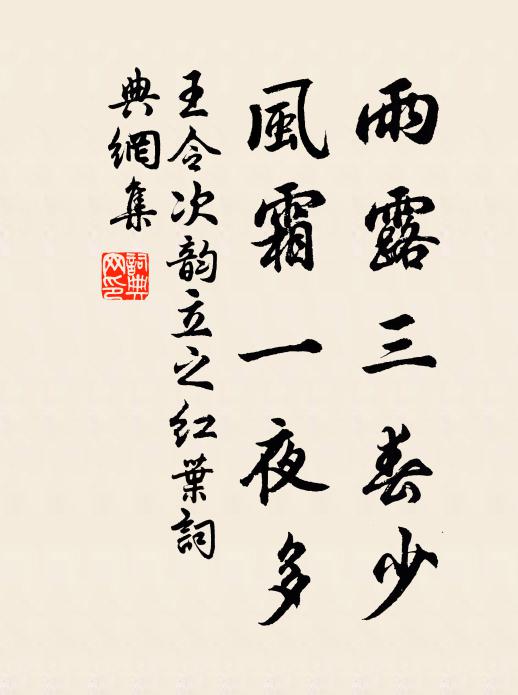 雨露三春少
風霜一夜多
王令次韵立之红葉詞
典網集
詞典网印